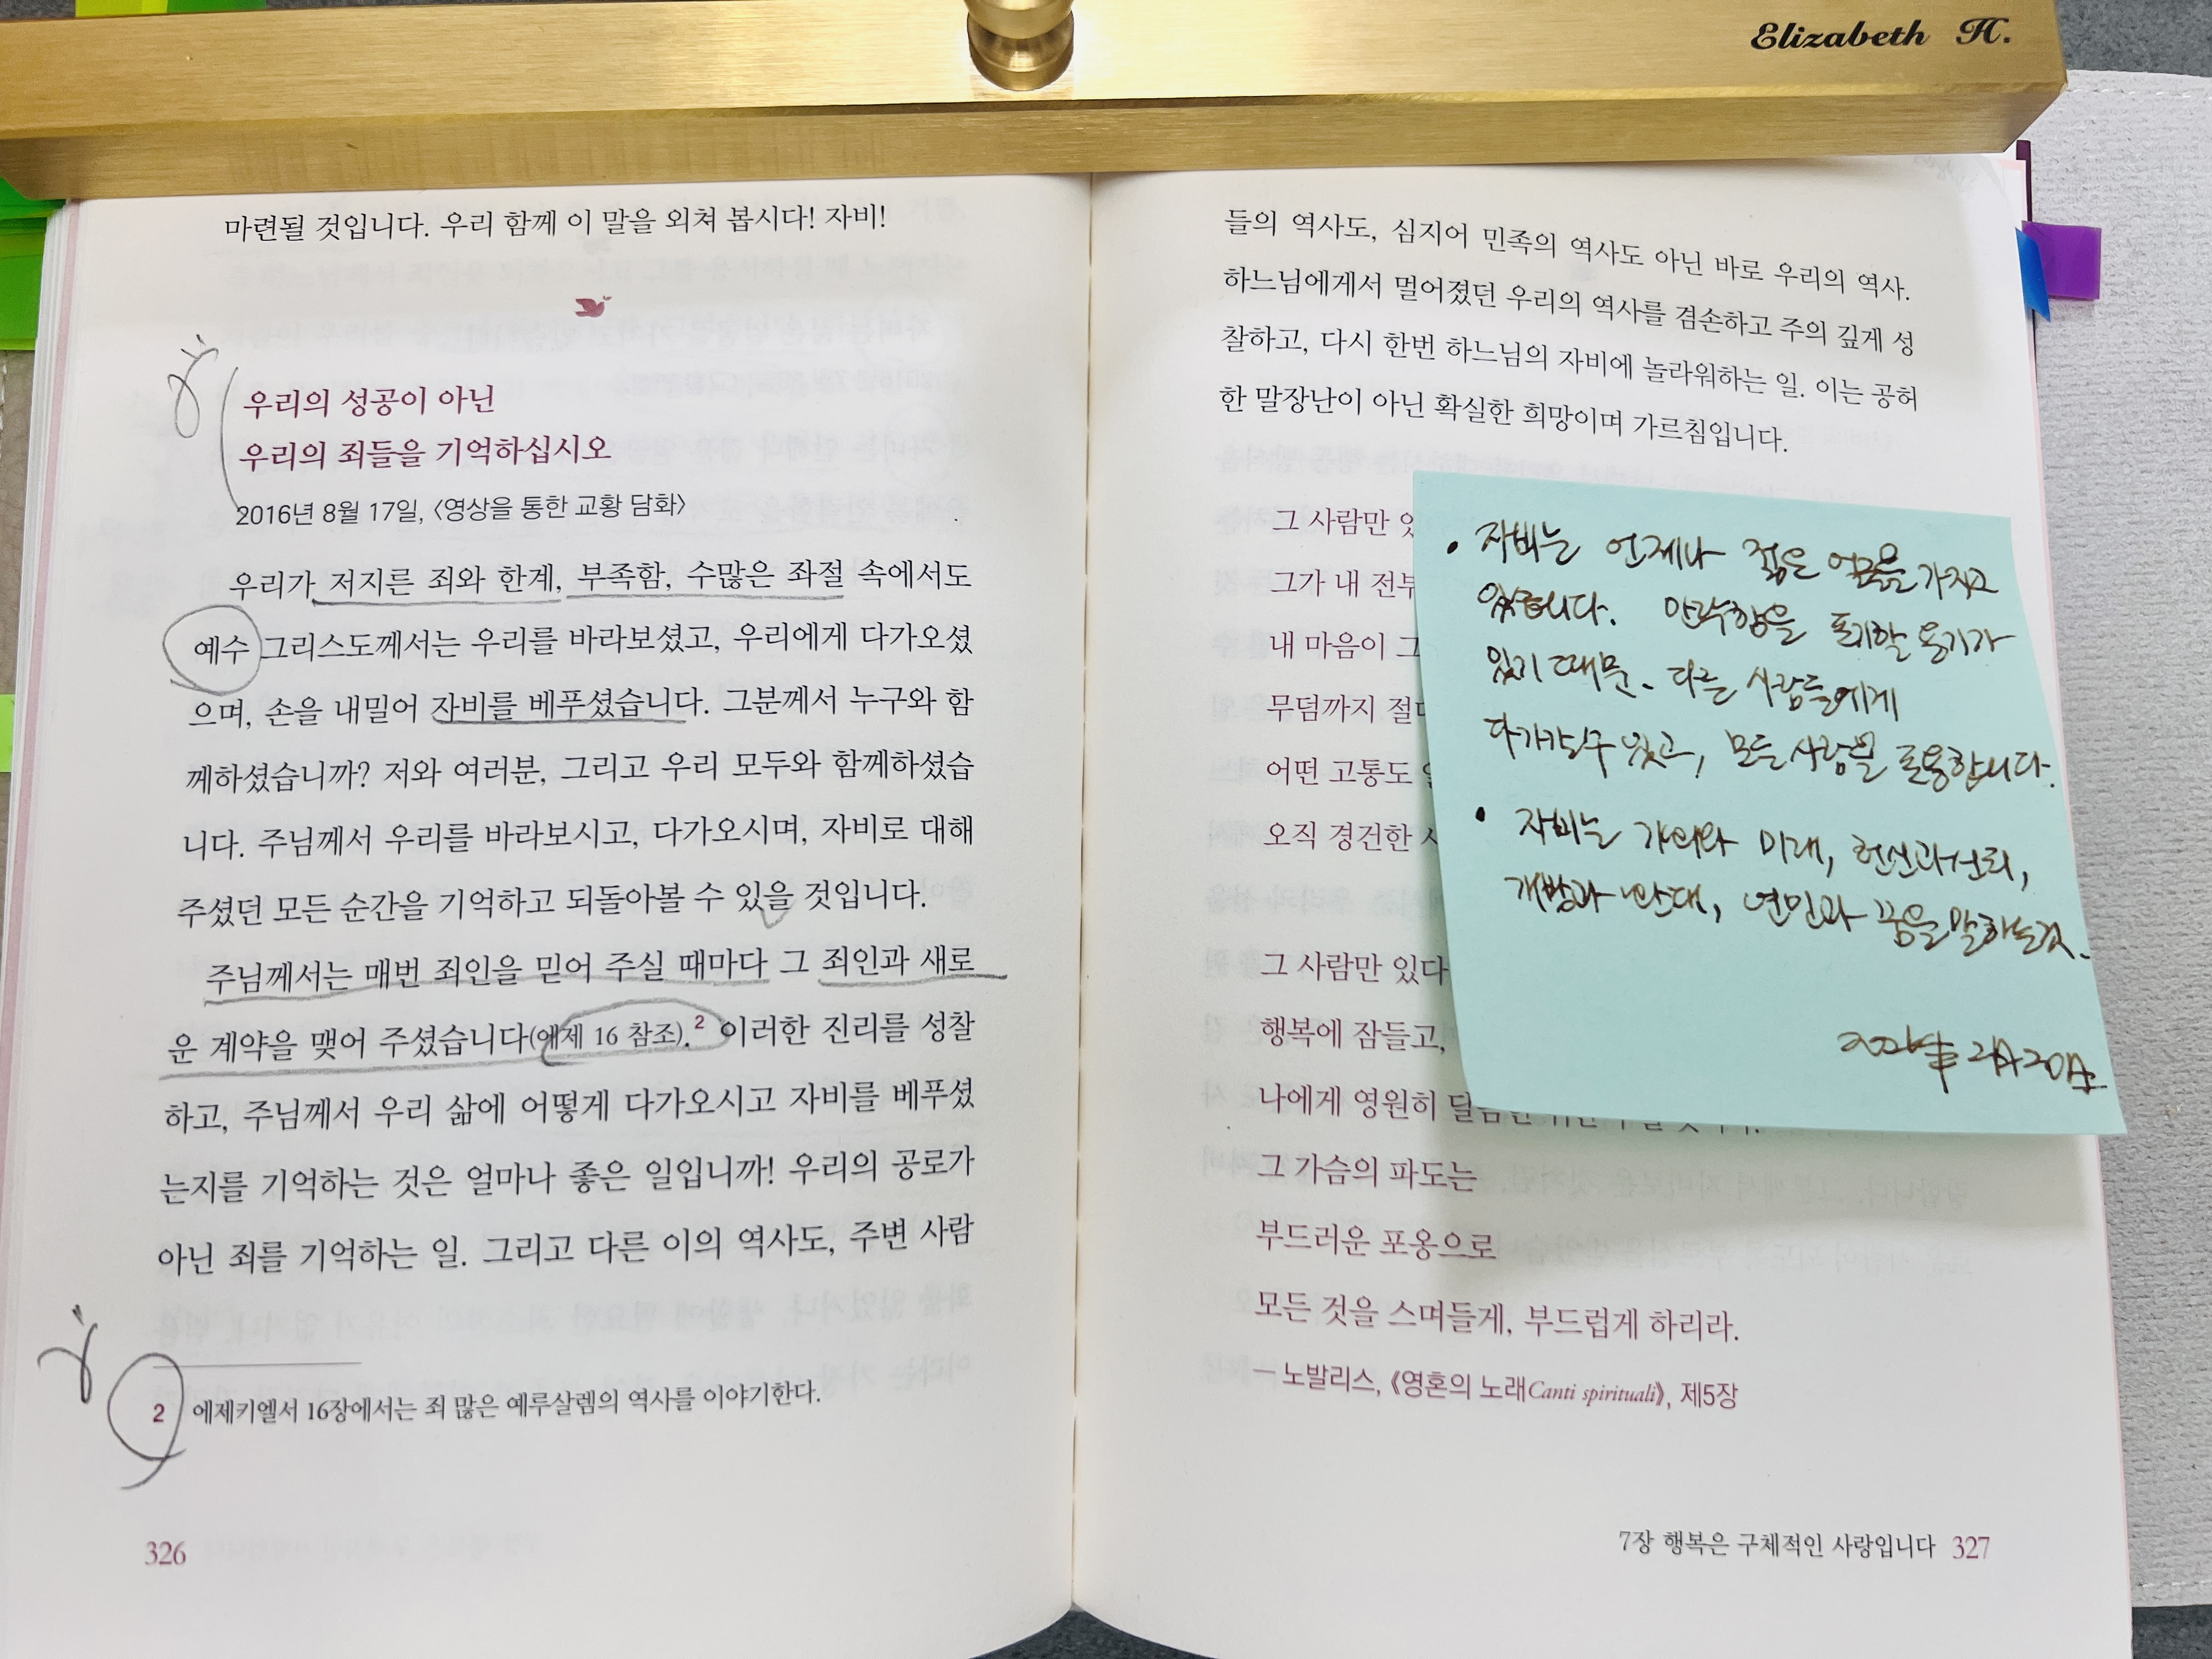 Elizabeth H.
마련될 것입니다. 우리 함께 이 말을 외쳐 봅시다! 자비!
우리의 성공이 아닌
우리의 죄들을 기억하십시오
2016년 8월 17일, 〈영상을 통한 교황 담화〉
우리가 저지른 죄와 한계, 부족함, 수많은 좌절 속에서도
예수 그리스도께서는 우리를 바라보셨고, 우리에게 다가오셨
으며, 손을 내밀어 자비를 베푸셨습니다. 그분께서 누구와 함
께하셨습니까? 저와 여러분, 그리고 우리 모두와 함께하셨습
니다. 주님께서 우리를 바라보시고, 다가오시며, 자비로 대해
주셨던 모든 순간을 기억하고 되돌아볼 수 있을 것입니다.
주님께서는 매번 죄인을 믿어 주실 때마다 그 죄인과 새로
운 계약을 맺어 주셨습니다(에제 16 참조).2 이러한 진리를 성찰
하고, 주님께서 우리 삶에 어떻게 다가오시고 자비를 베푸셨
는지를 기억하는 것은 얼마나 좋은 일입니까! 우리의 공로가
아닌 죄를 기억하는 일. 그리고 다른 이의 역사도, 주변 사람
2 에제키엘서 16장에서는 죄 많은 예루살렘의 역사를 이야기한다.
326
들의 역사도, 심지어 민족의 역사도 아닌 바로 우리의 역사.
하느님에게서 멀어졌던 우리의 역사를 겸손하고 주의 깊게 성
찰하고, 다시 한번 하느님의 자비에 놀라워하는 일. 이는 공허
한 말장난이 아닌 확실한 희망이며 가르침입니다.
그 사람만 있
그가 내 전부
내 마음이 그
무덤까지 절대
어떤 고통도
오직 경건한
그 사람만 있다
행복에 잠들고,
나에게 영원히 달콤한
그 가슴의 파도는
부드러운 포옹으로
모든 것을 스며들게, 부드럽게 하리라.
— 노발리스, 《영혼의 노래Canti spirituali》, 제5장
7장 행복은 구체적인 사랑입니다 327
• 자비는 언제나 젊은 얼굴을 가지고
있습니다. 안락함을 포기할 용기가
있기 때문. 다른 사람들에게
다가갈 수 있고, 모든 사람을 포용합니다.
• 자비는 미래, 헌신과 신뢰,
개방과 환대, 연민과 꿈을 말하는 것.